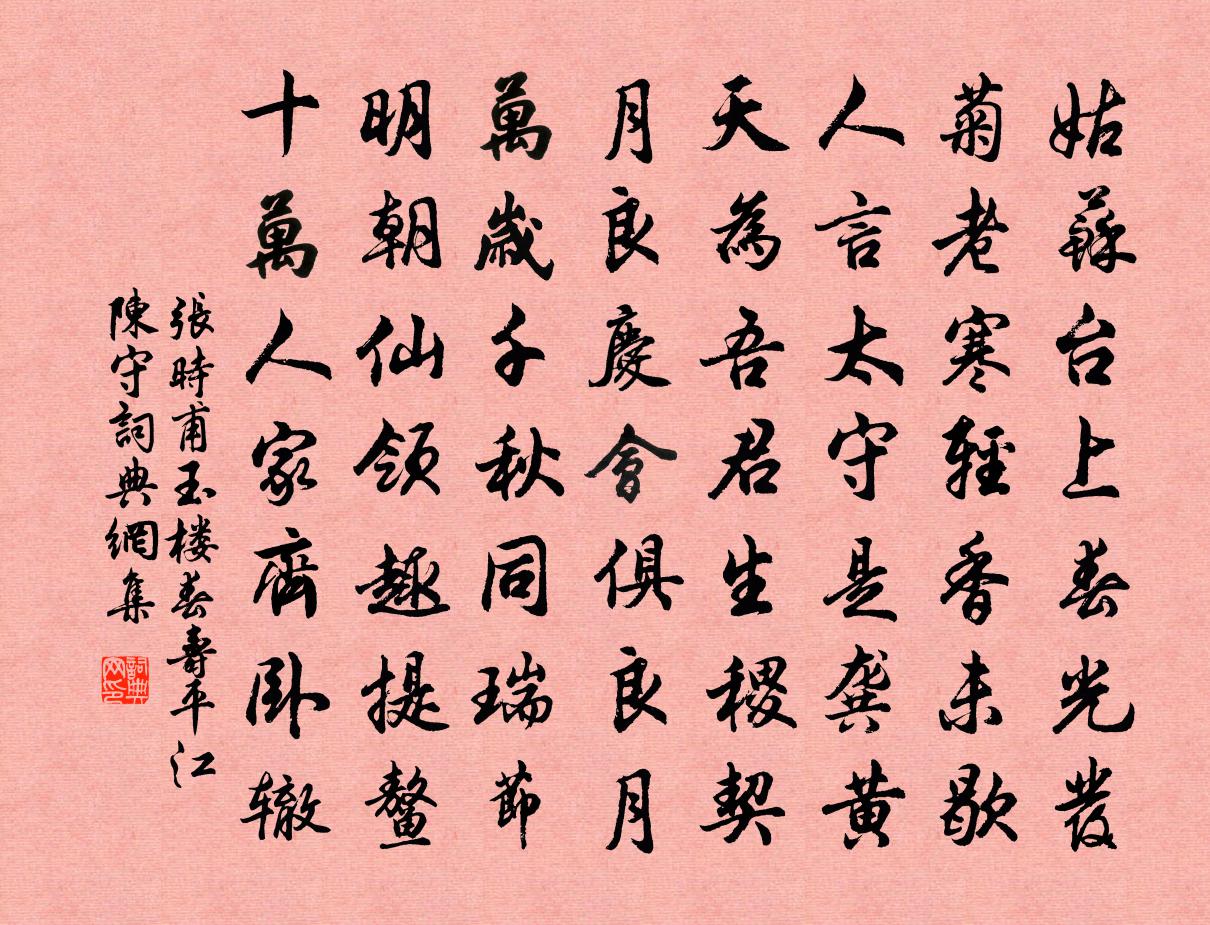 姑蘇台上春光發
菊老寒輕香未歇
人言太守是龔黃
天為吾君生稷契
月良慶會俱良月
萬歲千秋同瑞節
明朝仙領趣提鼇
十萬人家齊卧轍
張時甫玉楼春壽平江
陳守詞典網集
詞典网印